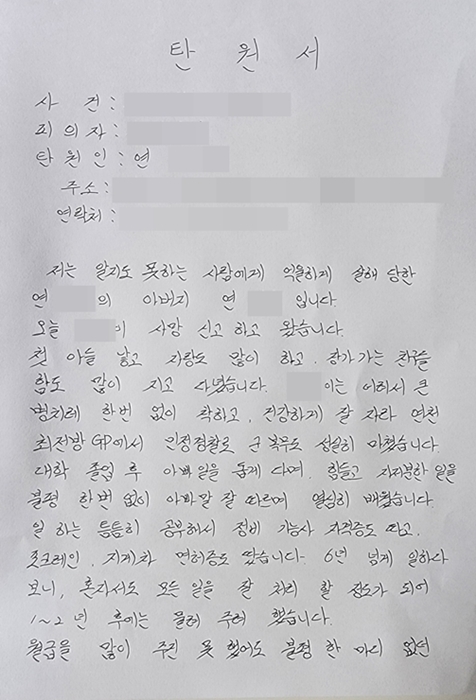 탄 원 서
사 건 :
피 의 자 :
탄 원 인 : 연
주소 :
연락처 :
저는 알지도 못하는 사람에게 억울하게 살해 당한
연 의 아버지 연 입니다.
오늘 이 사망 신고 하고 왔습니다.
첫 아들 낳고 자랑도 많이 하고, 장가 가는 친구들
함도 많이 지고 다녔습니다. 이는 어려서 큰
병치레 한번 없이 착하고, 건강하게 잘 자라 연천
최전방 GP에서 민정경찰로 군 복무도 성실히 마쳤습니다.
대학 졸업 후 아빠 일을 돕게 다며, 힘들고 지저분한 일을
불평 한번 없이 아빠 말 잘 따르며 열심히 배웠습니다.
일 하는 틈틈히 공부해서 정비 기능사 자격증도 따고,
크레인, 지게차 면허증도 땄습니다. 6년 넘게 일하다
보니, 혼자서도 모든 일을 잘 처리 할 정도가 되어
1~2 년 후에는 물려 주려 했습니다.
월급을 많이 주진 못 했어도 불평 한 마디 없던